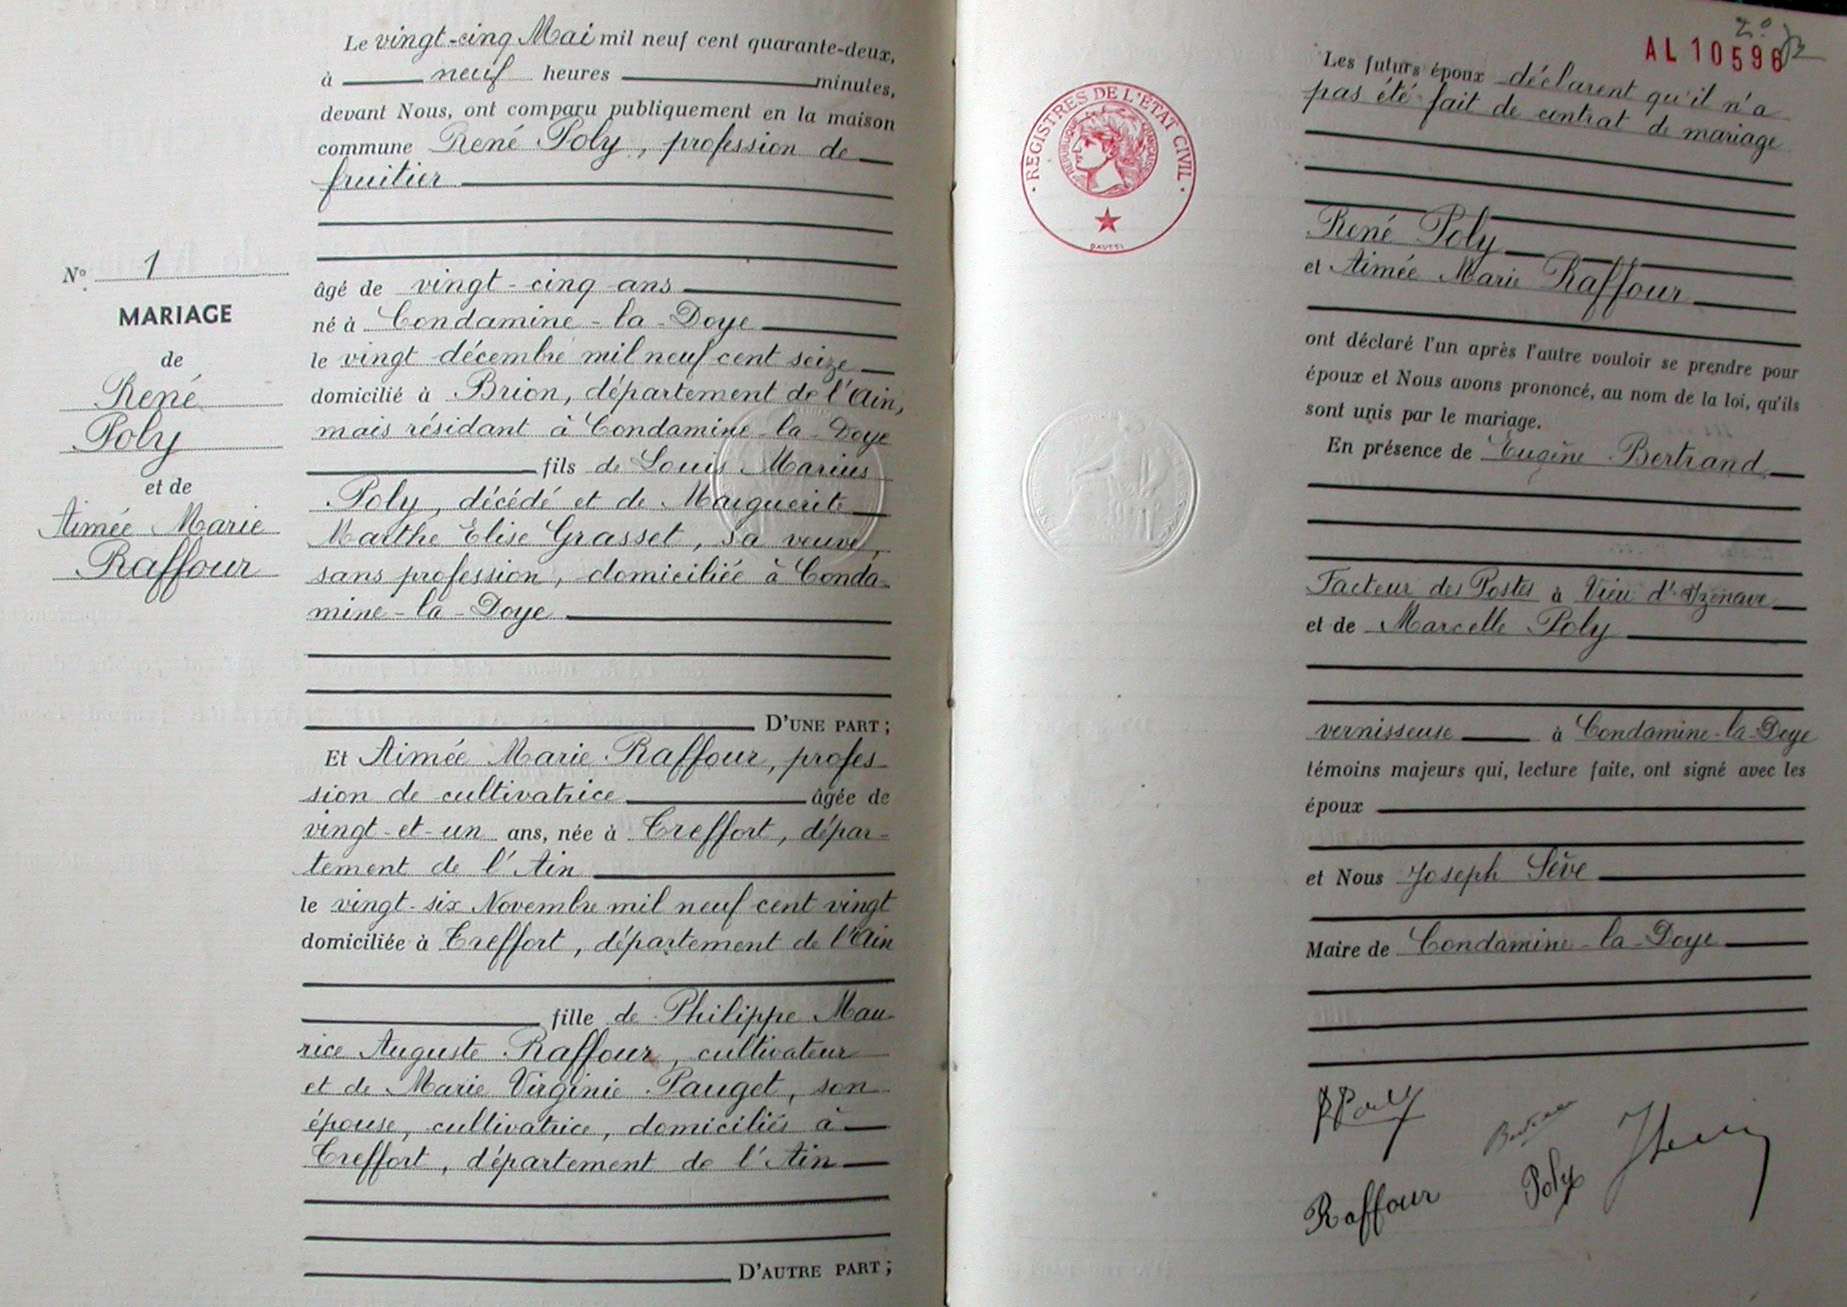 Le vingt-cinq Mai mil neuf cent quarante-deux,
à neuf heures minutes,
devant Nous, ont comparu publiquement en la maison
commune René Poly, profession de
fruitier
âgé de vingt-cinq ans
né à Condamine-la-Doye
le vingt décembre mil neuf cent seize
domicilié à Brion, département de l'Ain,
mais résidant à Condamine-la-Doye
fils de Louis Marius
Poly, décédé et de Marguerite
Marthe Elise Grasset, sa veuve,
sans profession, domiciliée à Conda-
mine-la-Doye
D'UNE PART;
Et Aimée Marie Raffour, profes-
sion de cultivatrice âgée de
vingt-et-un ans, née à Treffort, dépar-
tement de l'Ain
le vingt-six Novembre mil neuf cent vingt
domiciliée à Treffort, département de l'Ain
fille de Philippe Mau-
rice Auguste Raffour, cultivateur
et de Marie Virginie Pauget, son
épouse, cultivatrice, domiciliés à
Treffort, département de l'Ain
D'AUTRE PART;
N° 1
MARIAGE
de
René
Poly
et de
Aimée Marie
Raffour
AL 10596
REGISTRES DE L'ÉTAT CIVIL
Les futurs époux déclarent qu'il n'a
pas été fait de contrat de mariage
René Poly
et Aimée Marie Raffour
ont déclaré l'un après l'autre vouloir se prendre pour
époux et Nous avons prononcé, au nom de la loi, qu'ils
sont unis par le mariage.
En présence de Eugène Bertrand
Facteur des Postes à Vieu d'Izenave
et de Marcelle Poly
vernisseuse à Condamine-la-Doye
témoins majeurs qui, lecture faite, ont signé avec les
époux
et Nous Joseph Sève
Maire de Condamine-la-Doye
RPoly
Raffour
Poly